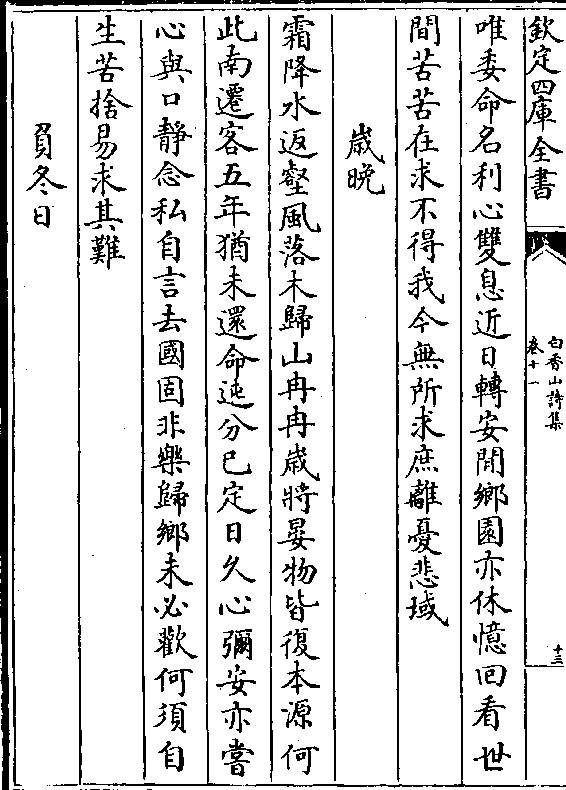 欽定四庫全書
白香山詩集
卷十一
十三
唯委命名利心雙息近日轉安閒鄉園亦休憶回看世
間苦苦在求不得我今無所求庶離憂悲域
歲晚
霜降水返壑風落木歸山冉冉歲將晏物皆復本源何
此南遷客五年猶未還命迍分已定日久心彌安亦嘗
心與口靜念私自言去國固非樂歸鄉未必歡何須自
生苦捨易求其難
負冬日